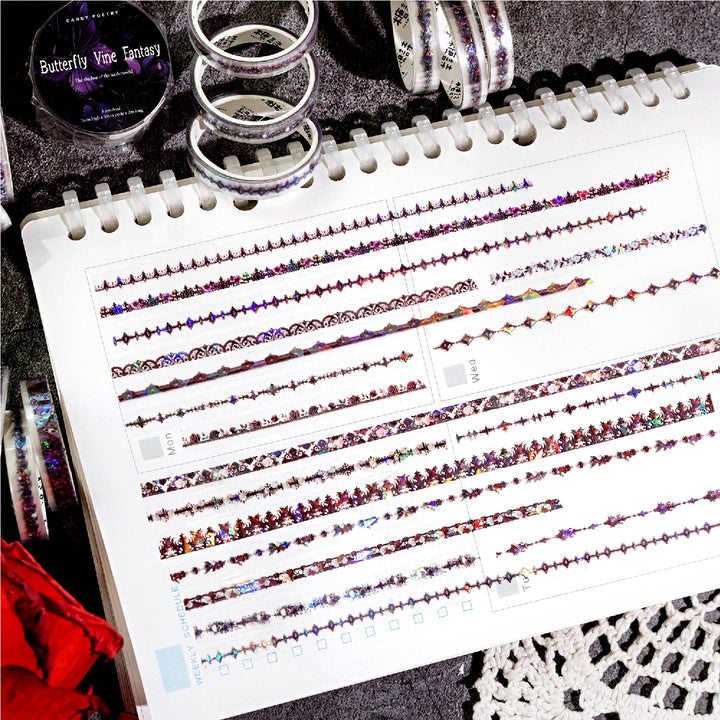 CANDY POETRY
Butterfly Vine Fantasy
The shadow of the underworld
Mon
Wed
WEEKLY SCHEDULE